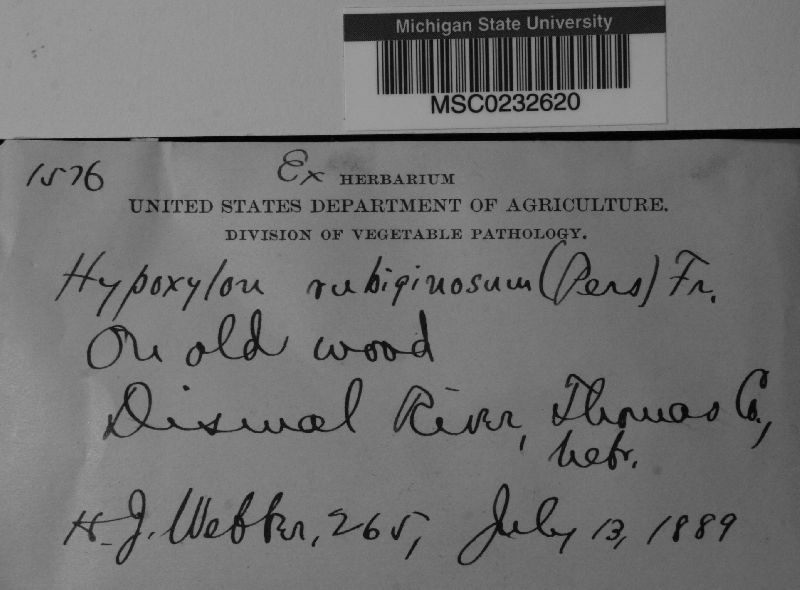 Michigan State University
MSC0232620
1576
Ex HERBARIUM
UNITED STATES DEPARTMENT OF AGRICULTURE.
DIVISION OF VEGETABLE PATHOLOGY.
Hypoxylon rubiginosum (Pers) Fr.
On old wood
Dismal River, Thomas Co.,
Nebr.
H. J. Webber, 265, July 13, 1889